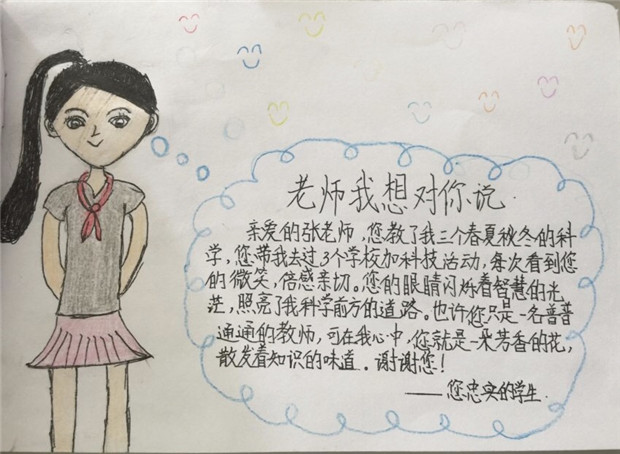 老师我想对你说
亲爱的张老师,您教了我三个春夏秋冬的科
学,您带我去过3个学校加科技活动,每次看到您
的微笑,倍感亲切。您的眼睛闪烁着智慧的光
芒,照亮了我科学前方的道路。也许您只是一名普普
通通的教师,可在我心中,您就是一朵芳香的花,
散发着知识的味道。谢谢您!
——您忠实的学生.